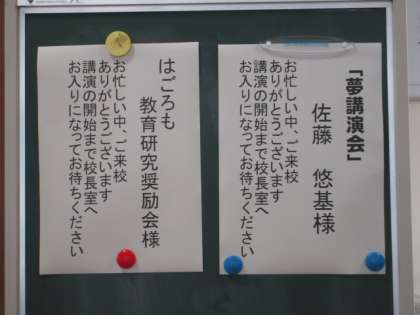 「夢講演会」
佐藤 悠基様
お忙しい中、ご来校
ありがとうございます
講演の開始まで校長室へ
お入りになってお待ちください
はごろも
教育研究奨励会様
お忙しい中、ご来校
ありがとうございます
講演の開始まで校長室へ
お入りになってお待ちください